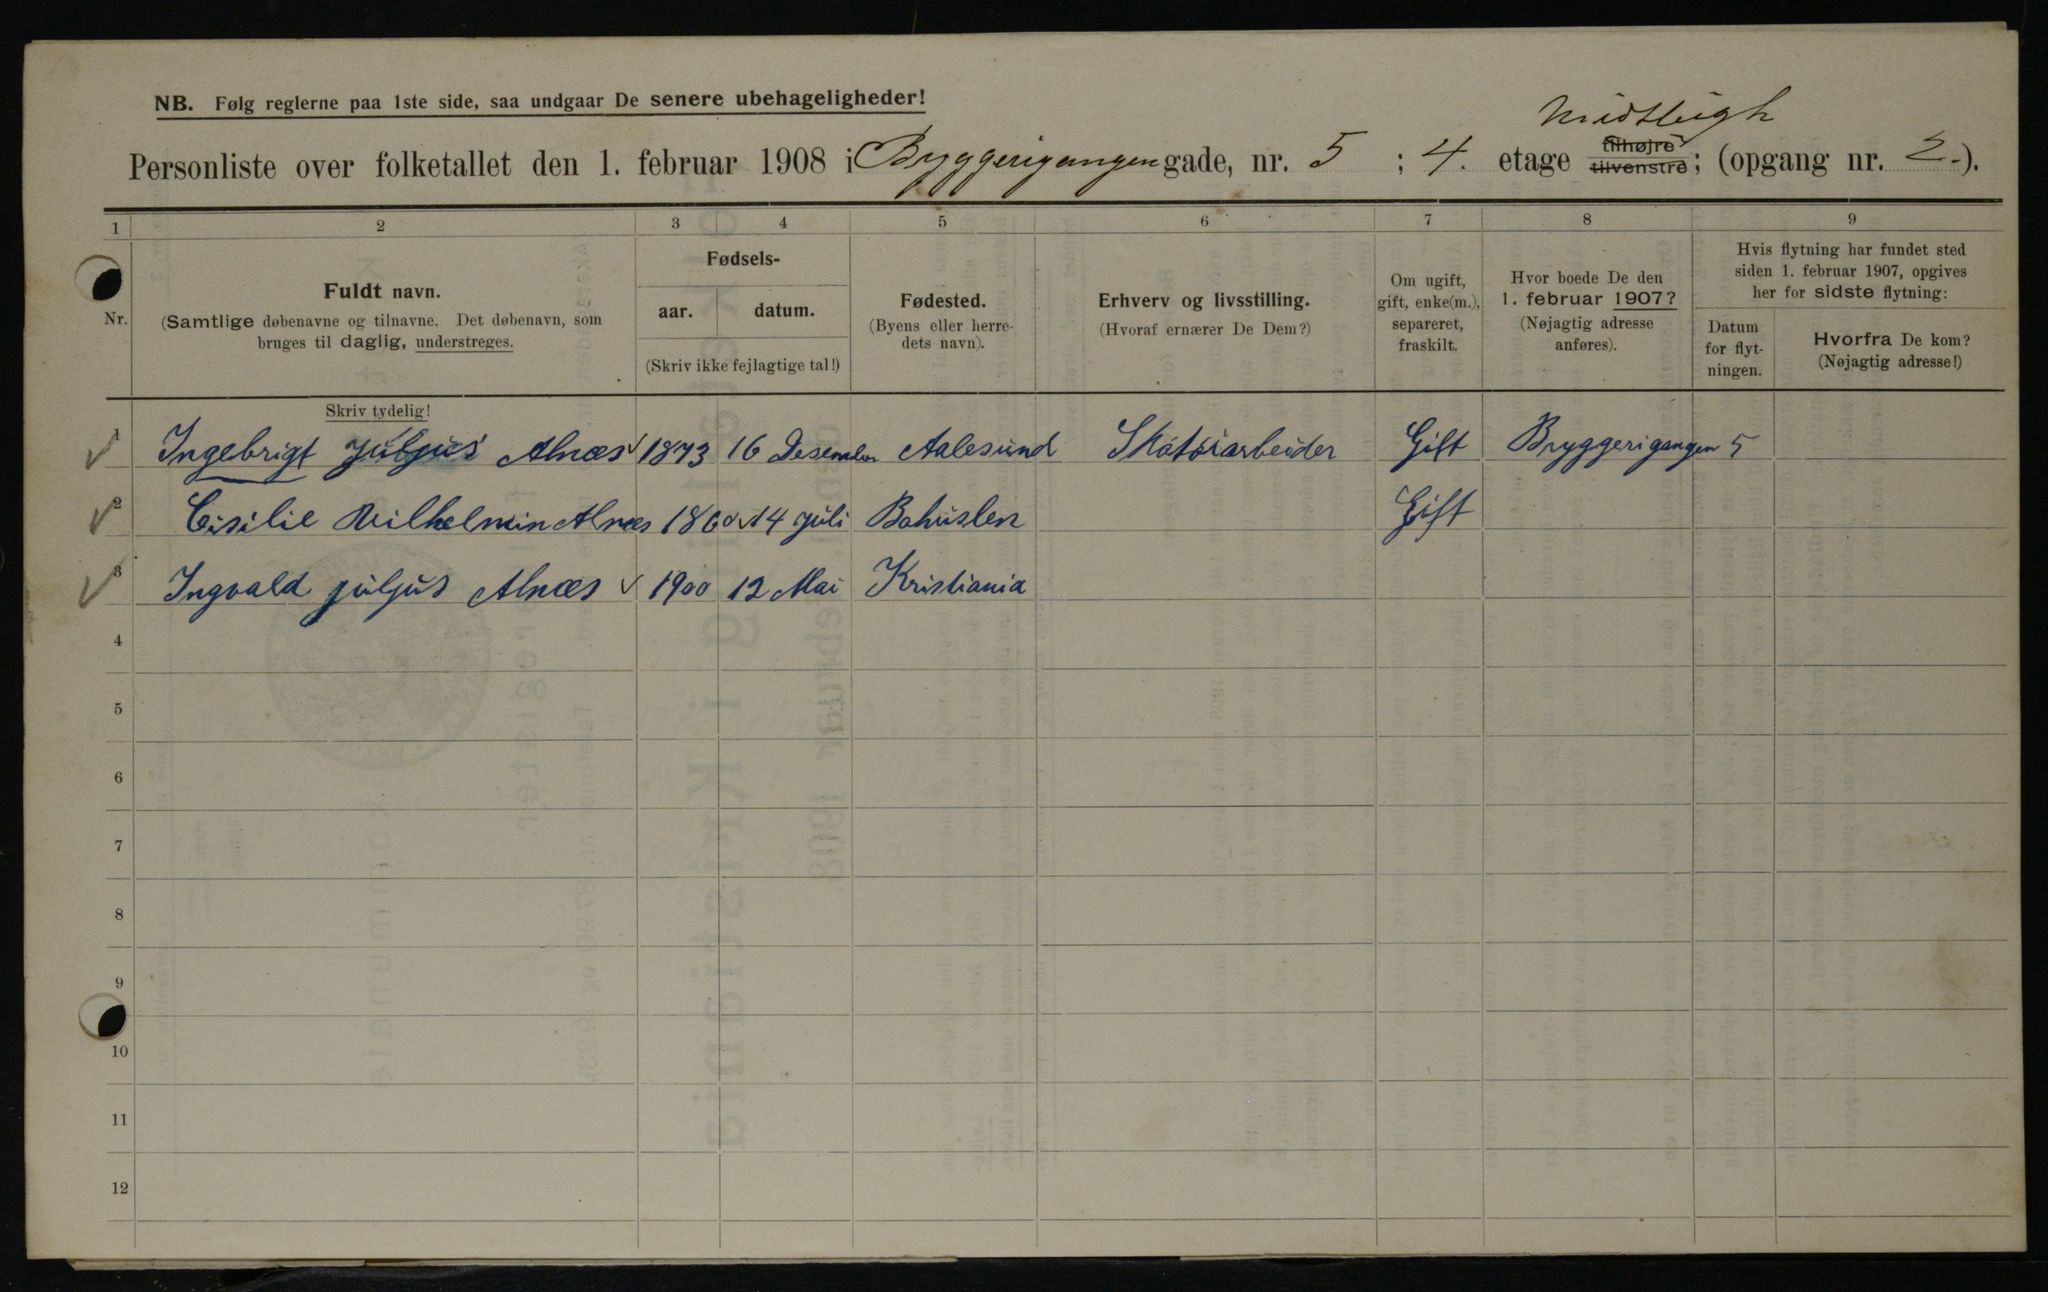 NB. Følg reglerne paa 1ste side, saa undgaar De senere ubehageligheder!
midtleigh
Personliste over folketallet den 1. februar 1908 i Bryggerigangen gade, nr. 5 ; 4. etage tilhøjre tilvenstre ; (opgang nr. 2.).
1 2 3 4 5 6 7 8 9
Nr.
Fuldt navn.
(Samtlige døbenavne og tilnavne. Det døbenavn, som
bruges til daglig, understreges.
Fødsels-
aar. datum.
(Skriv ikke fejlagtige tal!)
Fødested.
(Byens eller herre-
dets navn).
Erhverv og livsstilling.
(Hvoraf ernærer De Dem?)
Om ugift,
gift, enke(m.),
separeret,
fraskilt.
Hvor boede De den
1. februar 1907?
(Nøjagtig adresse
anføres).
Hvis flytning har fundet sted
siden 1. februar 1907, opgives
her for sidste flytning:
Datum
for flyt-
ningen.
Hvorfra De kom?
(Nøjagtig adresse!)
Skriv tydelig!
1 Ingebrigt Juljus Alnæs 1873 16 Desember Aalesund Skotöiarbeider Gift Bryggerigangen 5
2 Cisilie Vilhelmin Alnæs 1860 14 Juli Bohuslen Gift
3 Ingvald Juljus Alnæs 1900 12 Mai Kristiania
4
5
6
7
8
9
10
11
12